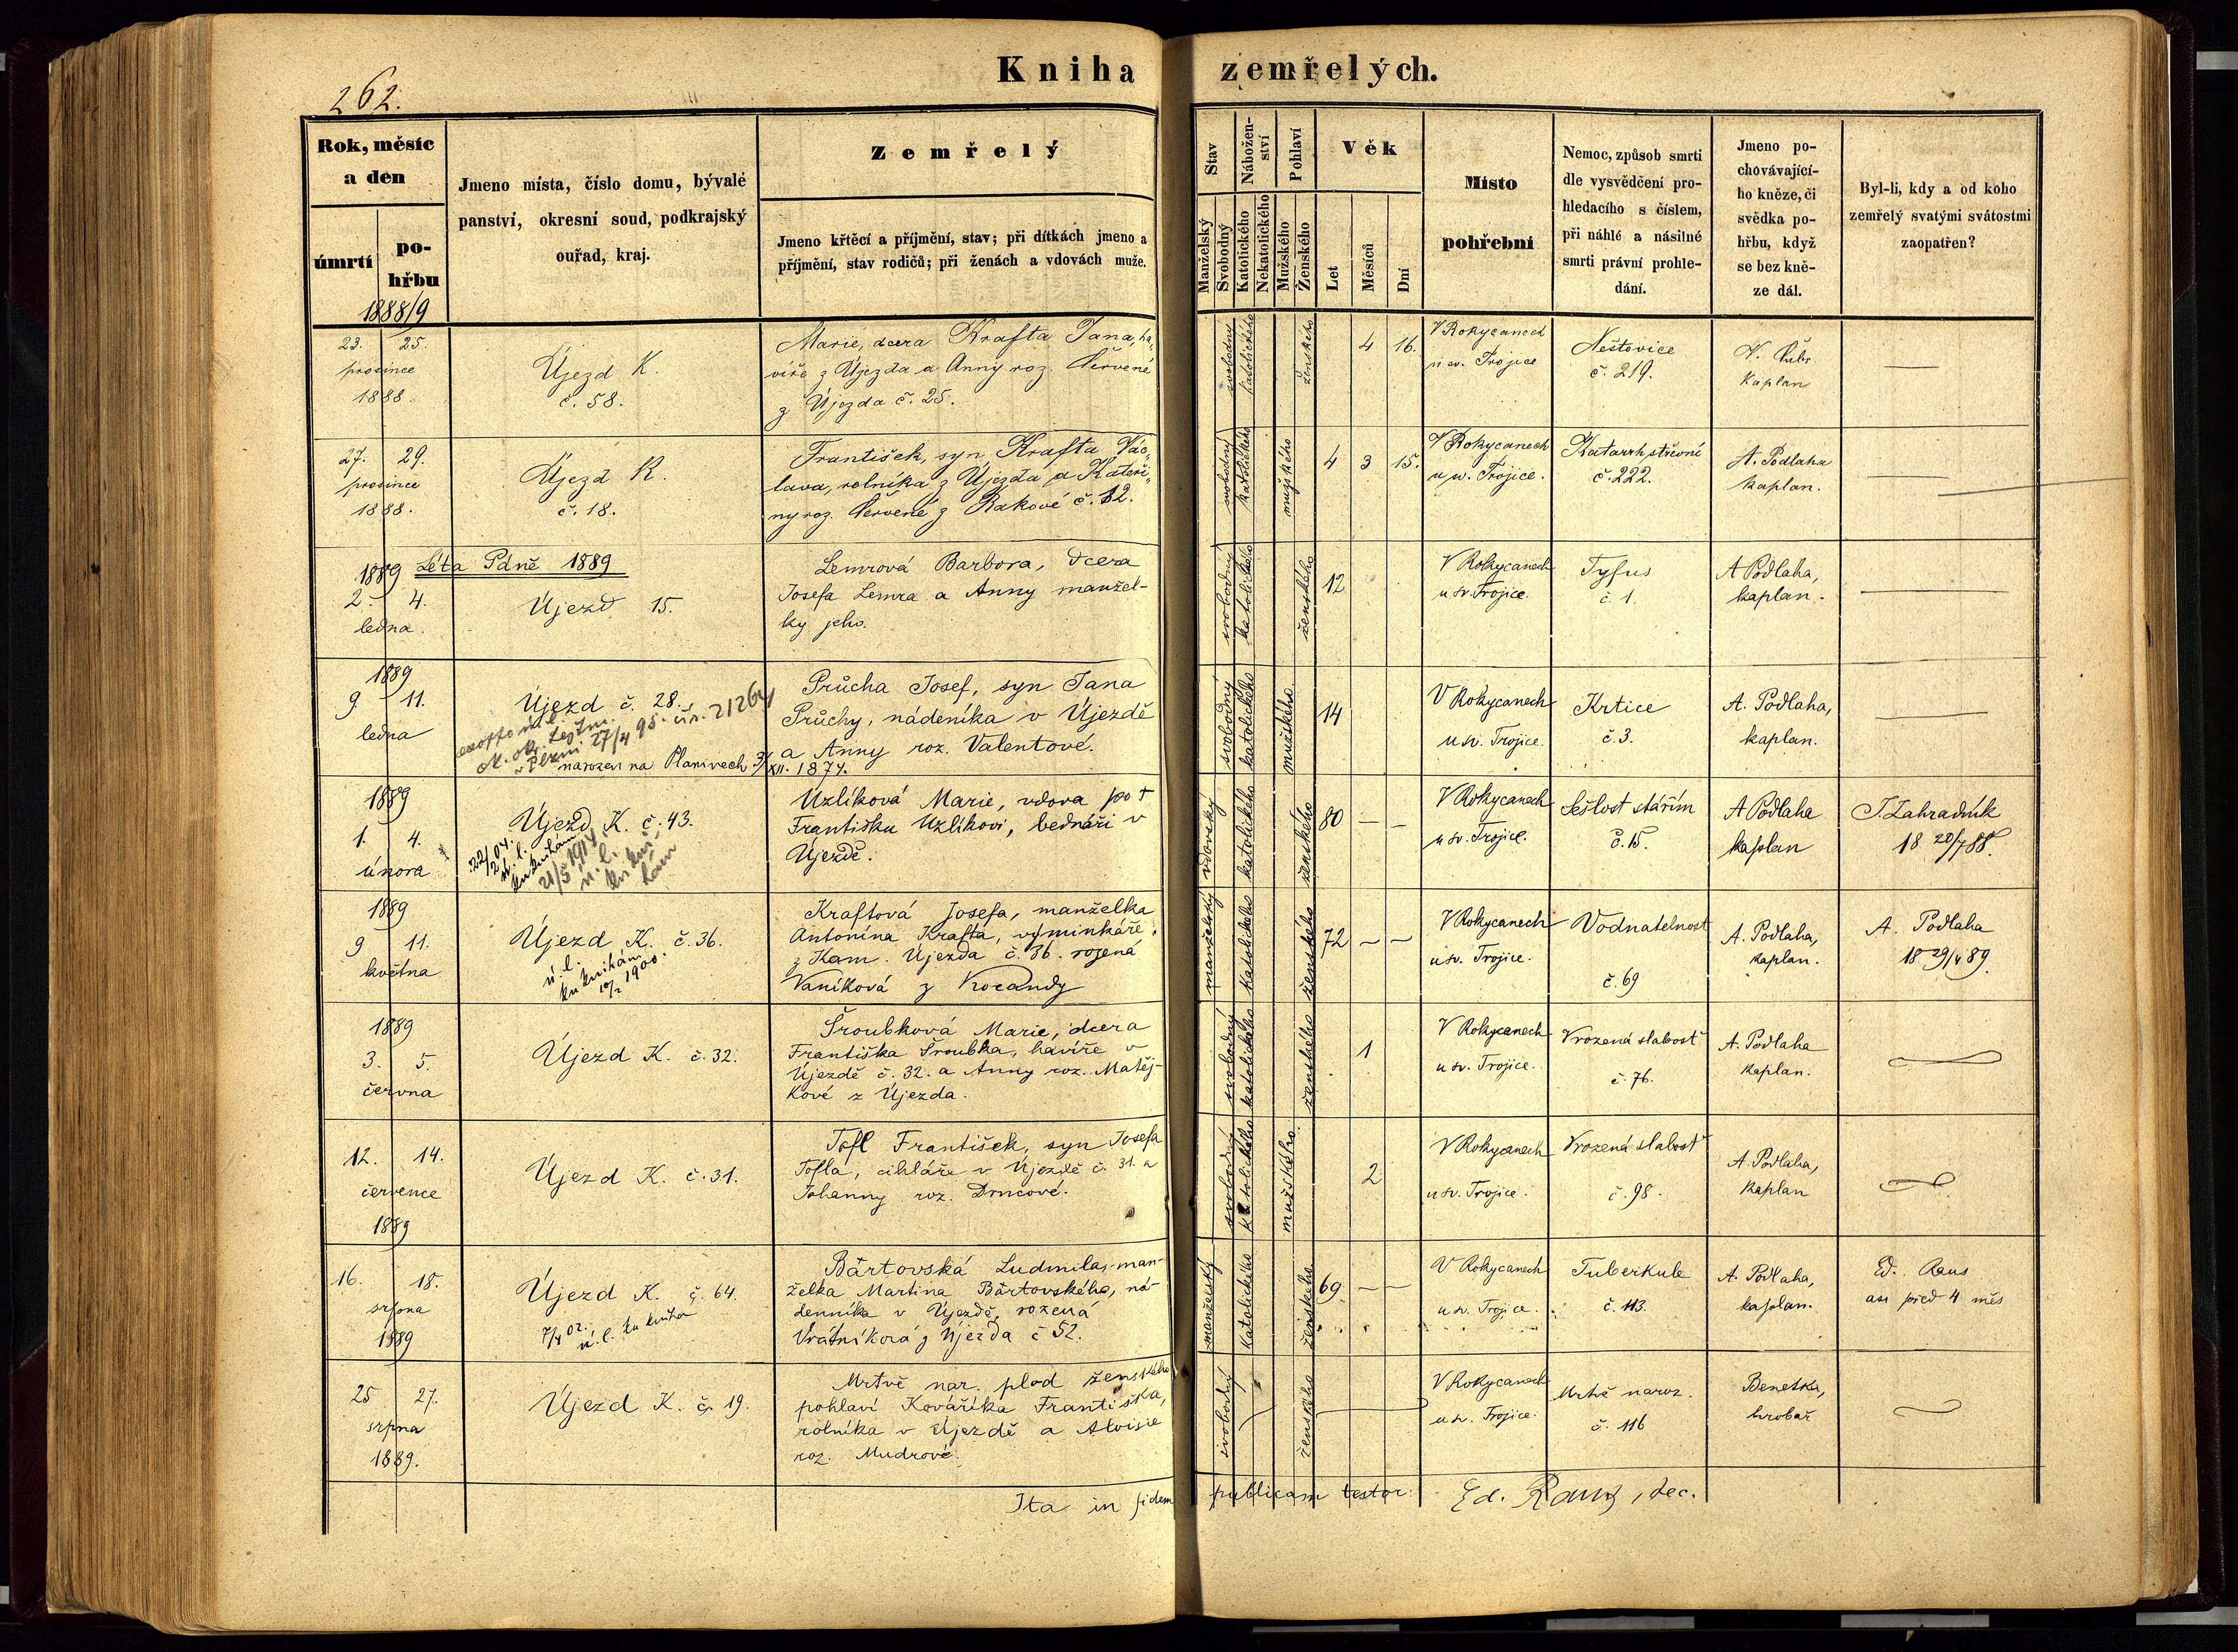 262.
Kniha zemřelých.
Rok, měsíc
a den
úmrtí
po-
hřbu
1888/9
Jmeno místa, číslo domu, bývalé
panství, okresní soud, podkrajský
ouřad, kraj.
Zemřelý
Jmeno křtěcí a příjmění, stav; při dítkách jmeno a
příjmění, stav rodičů; při ženách a vdovách muže.
Stav
Manželský
Svobodný
Nábožen-
ství
Katolického
Nekatolického
Pohlaví
Mužského
Ženského
Věk
Let
Měsíců
Dní
Místo
pohřební
Nemoc, způsob smrti
dle vysvědčení pro-
hledacího s číslem,
při náhlé a násilné
smrti právní prohle-
dání.
Jmeno po-
chovávající-
ho kněze, či
svědka po-
hřbu, když
se bez kně-
ze dál.
Byl-li, kdy a od koho
zemřelý svatými svátostmi
zaopatřen?
23. 25.
prosince
1888.
Újezd K.
č. 58.
Marie, dcera Krafta Jana, ha„
víře z Újezda a Anny roz. Červené
z Újezda č. 25.
svobodný
katolického
ženského
4 16.
V Rokycanech
u sv. Trojice
Neštovice
č. 219.
Kaplan
27. 29.
prosince
1888.
Újezd K.
č. 18.
František, syn Krafta Vác„
lava, rolníka z Újezda a Kateři„
ny roz. Červené z Rakové č. 12.
svobodný
katolického
mužského
4 3 15.
V Rokycanech
u sv. Trojice.
Katarrh střevní
č. 222.
A. Podlaha
kaplan.
Léta Páně 1889
1889
2. 4.
ledna.
Újezd 15.
Lemrová Barbora, dcera
Josefa Lemra a Anny manžel-
ky jeho.
svobodný
katolického
ženského
12
V Rokycanech
u sv. Trojice.
Tyfus
č. 1.
A Podlaha,
kaplan.
1889
9 11.
ledna
Újezd č. 28.
27/4 95. čís. 21264
narozen na Planinech 3/XII. 1874.
Průcha Josef, syn Jana
Průchy, nádeníka v Újezdě
a Anny roz. Valentové.
svobodný
katolického
mužského
14
V Rokycanech
u sv. Trojice.
Krtice
č. 3.
A. Podlaha,
kaplan.
1889
1. 4.
února
Újezd K. č. 43.
22/2 04.
ú. l.
ku knihám
21/5 1914
ú. l.
ku kni-
hám
Uzlíková Marie, vdova po †
Františku Uzlíkovi, bednáři v
Újezdě.
vdovský
katolického
ženského
80 — —
V Rokycanech
u sv. Trojice.
Sešlost stářím
č. 15.
A Podlaha
kaplan
J. Zahradník
18 20/7 88.
1889
9 11.
května
Újezd K. č. 36.
ú. l.
ku knihám
10/2 1900.
Kraftová Josefa, manželka
Antonína Krafta, výminkáře
z Kam. Újezda č. 36. rozená
Vaníková z Kocandy
manželský
katolického
ženského
72 — —
V Rokycanech
u sv. Trojice.
Vodnatelnost
č. 69
A. Podlaha,
kaplan.
A. Podlaha
18 29/4 89.
1889
3. 5.
června
Újezd K. č. 32.
Šroubková Marie, dcera
Františka Šroubka, havíře v
Újezdě č. 32. a Anny roz. Matěj-
kové z Újezda.
svobodný
katolického
ženského
1
V Rokycanech
u sv. Trojice.
Vrozená slabost
č. 76.
A. Podlaha
kaplan.
12. 14.
července
1889
Újezd K. č. 31.
Tofl František, syn Josefa
Tofla, cihláře v Újezdě č. 31. a
Johanny roz. Drncové.
svobodný
katolického
mužského
2
V Rokycanech
u sv. Trojice.
Vrozená slabost
č. 98.
A. Podlaha,
kaplan
16. 18.
srpna
1889
Újezd K. č. 64.
ú. l. ku knihám
Bártovská Ludmila, man-
želka Martina Bártovského, ná-
denníka v Újezdě, rozená
Vrátníková z Újezda č 52.
manželský
katolického
ženského
69 — —
V Rokycanech
u sv. Trojice.
Tuberkule
č. 113.
A. Podlaha,
kaplan.
Ed. Raus
asi před 4 měs
25 27.
srpna
1889.
Újezd K. č. 19.
Mrtvě nar. plod ženského
pohlaví Kováříka Františka,
rolníka v Újezdě a Aloisie
roz. Mudrové.
svobodný
ženského
V Rokycanech
u sv. Trojice.
Mrtvě naroz.
č. 116
Benetka,
hrobař
Ita in fidem publicam testor: Ed. Raus, dec.